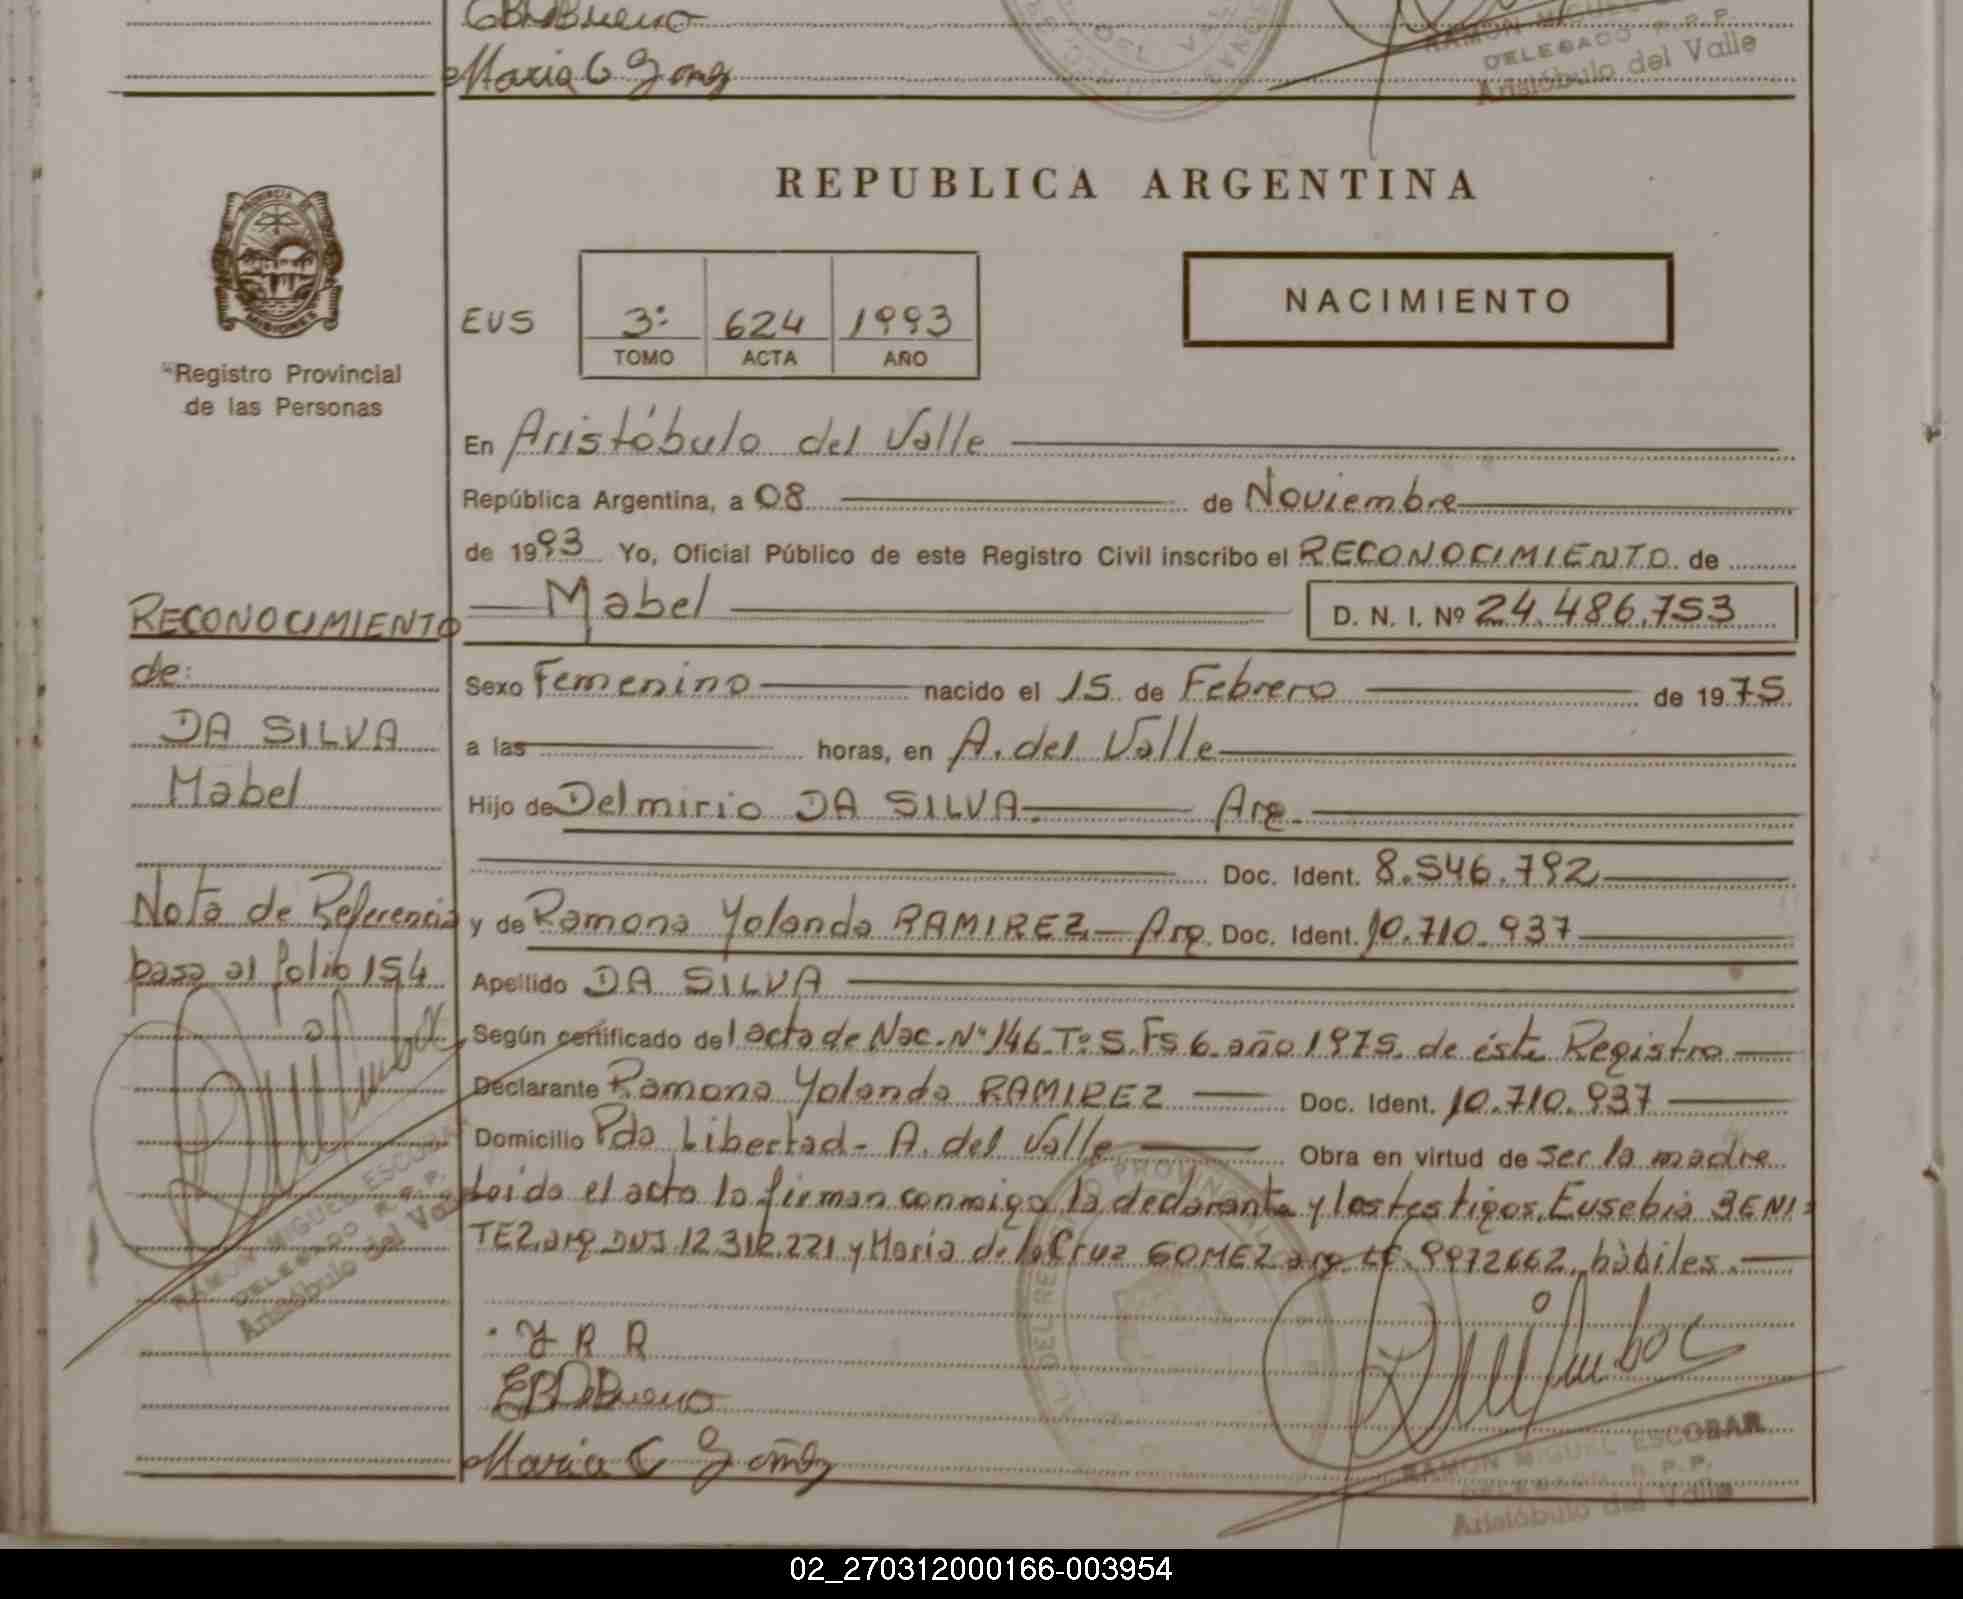 Maria C Gomez
RAMON MIGUEL
DELEGADO R.P.P.
Aristóbulo del Valle
REPUBLICA ARGENTINA
PROVINCIA DE
MISIONES
NACIMIENTO
EUS 3º 624 1993
TOMO ACTA AÑO
Registro Provincial
de las Personas
En Aristóbulo del Valle
República Argentina, a 08 de Noviembre
de 1993 Yo, Oficial Público de este Registro Civil inscribo el RECONOCIMIENTO de
Mabel D. N. I. Nº 24.486.753
RECONOCIMIENTO
de:
DA SILVA
Mabel
Sexo Femenino nacido el 15 de Febrero de 1975
a las horas, en A. del Valle
Hijo de Delmirio DA SILVA. Arg.
Doc. Ident. 8.546.792
y de Ramona Yolanda RAMIREZ Arg. Doc. Ident. 10.710.937
Nota de Referencia
pasa al folio 154
Apellido DA SILVA
Según certificado del acta de Nac. Nº 146 Tº 5. Fs 6 año 1975. de éste Registro
Declarante Ramona Yolanda RAMIREZ Doc. Ident. 10.710.937
Domicilio Pdo Libertad - A. del Valle Obra en virtud de ser la madre
Leido el acto lo firman conmigo la declarante y los testigos, Eusebia BENI=
TEZ, arg DNI 12.312.221 y Maria de la Cruz GOMEZ arg LC. 9972662, hábiles.
Y R R
Maria C Gomez
RAMON MIGUEL ESCOBAR
DELEGADO R.P.P.
Aristóbulo del Valle
RAMON MIGUEL ESCOBAR
DELEGADO R.P.P.
Aristóbulo del Valle
02_270312000166-003954